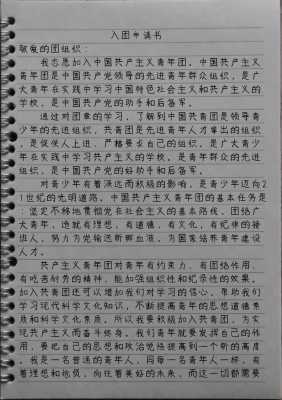 入团申请书
敬爱的团组织：
我志愿加入中国共产主义青年团。中国共产主义
青年团是中国共产党领导的先进青年群众组织，是广
大青年在实践中学习中国特色社会主义和共产主义的
学校，是中国共产党的助手和后备军。
通过对团章的学习，了解到中国共青团是领导青
少年的先进组织，共青团是先进青年人才辈出的组织
，是促使人上进、严格要求自己的组织，是广大青少
年在实践中学习共产主义的学校，是青年群众的先进
组织，是中国共产党的好助手和后备军。
对青少年有着深远而积极的影响，是青少年迈向21
世纪的光明道路。中国共产主义青年团的基本任务是
：坚定不移地贯彻党在社会主义的基本路线，团结广
大青年，造就有理想，有道德，有文化，有纪律的接
班人，努力为党输送新鲜血液，为国家培养青年建设
人才。
共产主义青年团对青年有约束力、有团结作用、
有吃苦耐劳的精神，能加强组织性和纪律性的效果。
加入共青团还可以增加我们对学习的信心，帮助我们
学习现代科学文化知识，不断提高青年的思想道德素
质和科学文化素质。所以我要积极加入共青团，为实
现共产主义而奋斗终身。我们青年就要发挥自己的作
用，要把自己的思想和政治觉悟提高到一个新的高度
。我是一名普通的青年人，同每一名青年人一样，有
着理想和抱负，向往着美好的未来，而这一切都需要